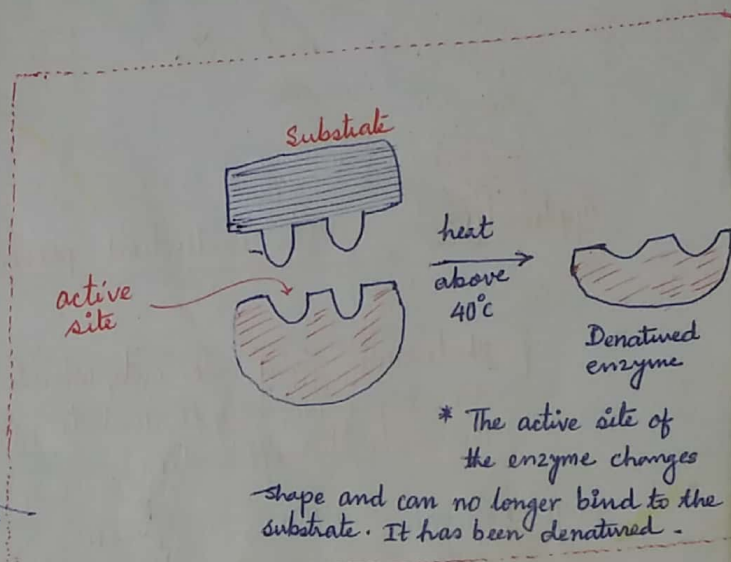 Substrate
active
site
heat
above
40°C
Denatured
enzyme
* The active site of
the enzyme changes
shape and can no longer bind to the
substrate. It has been denatured.